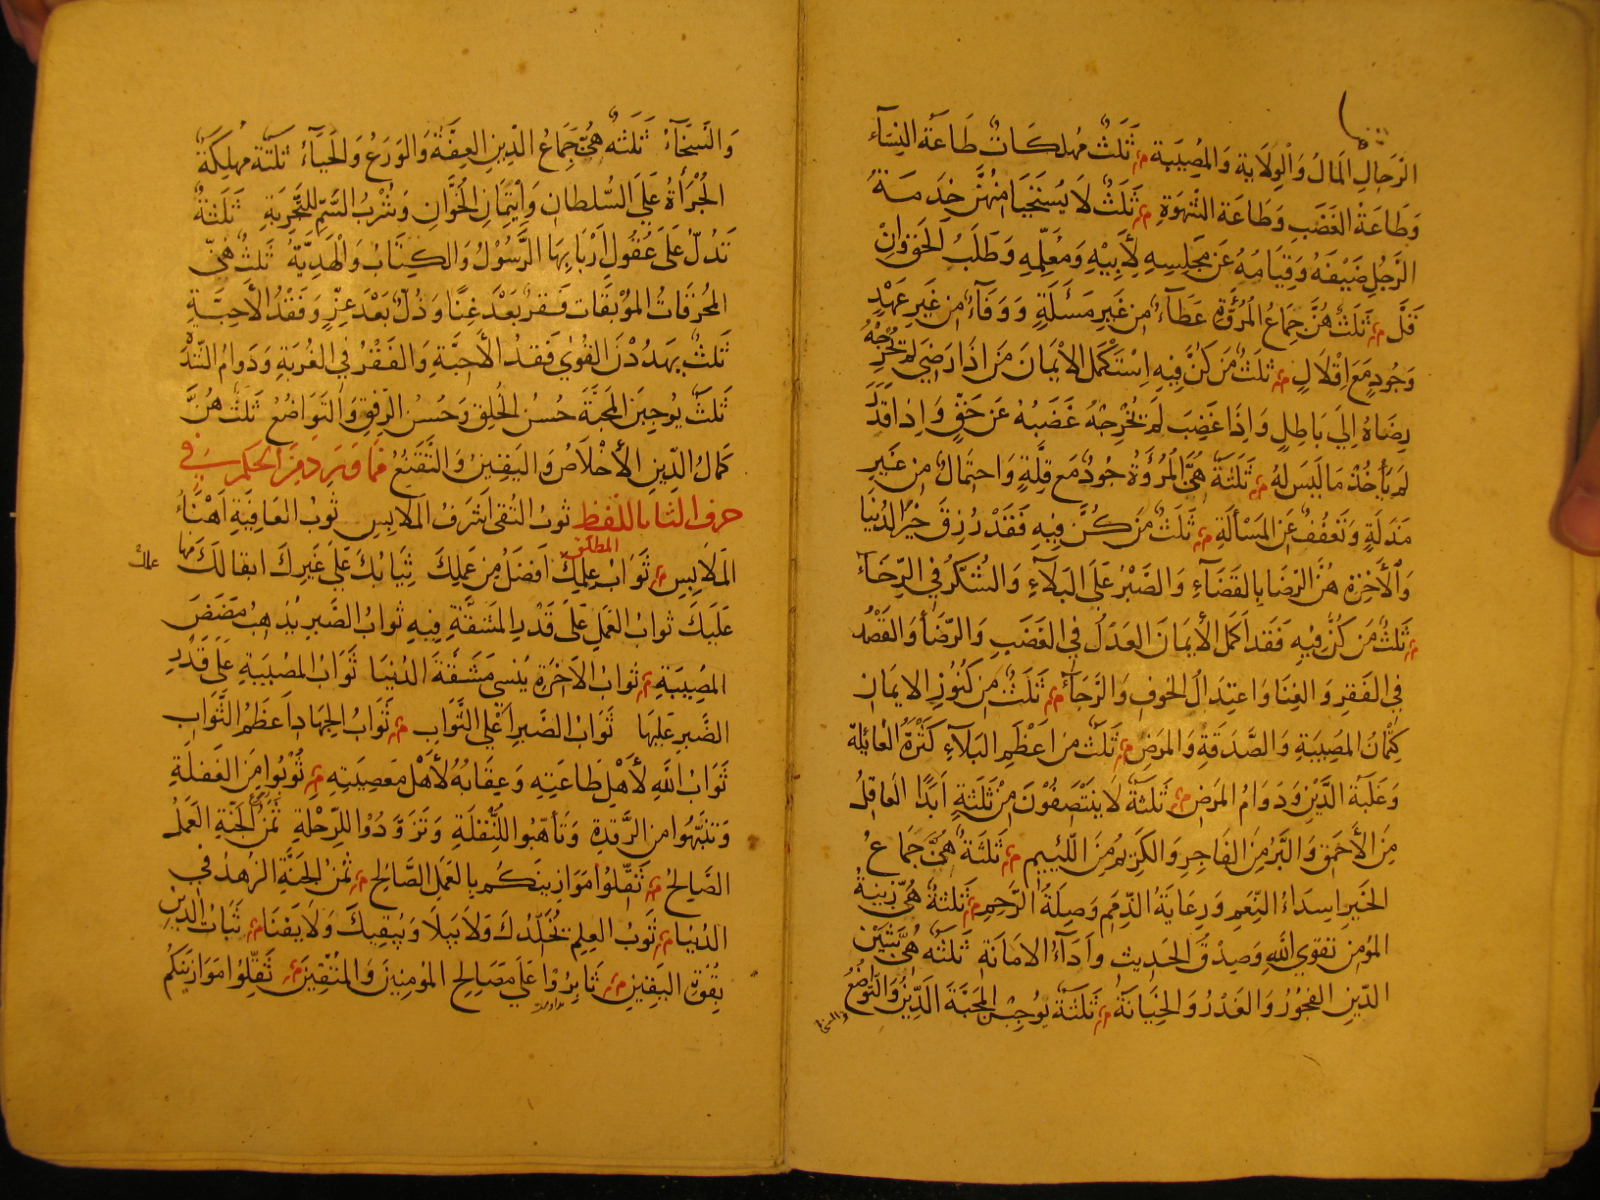 الرِّجَالِ المَالُ وَالْوِلَايَة وَالمُصِيبَة ثَلَثٌ مُهلِكَاتٌ طَاعَةُ النِسَآء
وَطَاعَةُ الغَضَبِ وَطَاعَة الشَّهوَةِ ثَلَثٌ لَا يُسْتَحْيَا مِنْهُنَّ خِدَمَةُ
الرَّجُلِ ضَيْفَهُ وَقِيَامُهُ عَن مَجلِسِهِ لِأَبِيْهِ وَمُعَلِّمِهِ وَطَلَبُ الحَقِّ وَانْ
قَلَّ ثَلَثٌ هُنَّ جِمَاعُ المُرُوَّةِ عَطَآءٌ مِن غَيرِ مَسْئَلَةٍ وَوَفَآءٌ مِن غَيرِ عَهْدٍ
وَجُودٍ مَعَ اِقْلَالٍ ثَلَثٌ مَن كُنَّ فِيهِ اِسْتَكْمَلَ الْاِيْمَانَ مَن اِذَا رَضِيَ لَمْ يُخْرِجْهُ
رِضَاهُ اِلَي بَاطِلٍ وَاِذَا غَضِبَ لَم يُخْرِجْهُ غَضَبُهُ عَن حَقٍّ وَاِذَا قَدَرَ
لَم يَأخُذْ مَا لَيسَ لَهُ ثَلَثَةٌ هُنَّ المُرُوَّةُ جُودٌ مَع قِلَّةٍ وَاحتِمَالٌ مِن غَيرِ
مَذَلَّةٍ وَتَعَفُّفٌ عَنِ المَسْأَلَةِ ثَلَثٌ مَن كُنَّ فِيهِ فَقَدْ رُزِقَ خَيْرَ الدُنْيَا
وَالْأَخِرَةِ هُنَّ الرِّضَا بِالقَضَآءِ وَالصَّبْرُ عَلَى البَلَآءِ وَالشُكرُ فِي الرَّخَآءِ
ثَلَثٌ مَن كُنَّ فِيهِ فَقَد اَكمَلَ الْأِيمَانَ العَدَلُ فِي الغَضَبِ وَالرِّضَا وَالقَصْدُ
فِي الفَقرِ وَالغِنَا وَاعتِدَالُ الخَوفِ وَالرَّجَآءِ ثَلَثٌ مِن كُنُوزِ الايمَانِ
كِتْمَانُ المُصِيبَةِ وَالصَّدَقَةُ وَالمَرَضِ ثَلَثٌ مِن اَعْظَمِ البَلَآءِ كَثْرَةُ العَائِلَةِ
وَغَلَبَةُ الدَّيْنِ وَدَوَامُ المَرَضِ ثَلَثَةٌ لَا يَنْتَصِفُوْنَ مِنْ ثَلَثَةٍ اَبَدًا العَاقِلُ
مِنَ الأَحمَقِ وَالبَرُّ مِنَ الفَاجِرِ وَالكَرِيْمُ مِنَ اللَّئِيمِ ثَلَثَةٌ هُنَّ جِمَاعُ
الخَيرِ اِسدَاءُ النِّعَمِ وَرِعَايَةُ الذِّمَمِ وَصِلَةُ الرَّحِمِ ثَلَثَةٌ هُنَّ زِينَةُ
المُؤمِنِ تَقوَى اللهِ وَصِدْقُ الحَدِيثِ وَاَدَآءُ الامَانَةِ ثَلَثَةٌ هُنَّ شَيْنُ
الدِّينِ الفُجُوْرُ وَالغَدْرُ وَالخِيَانَةُ ثَلَثَةٌ يُوجِبْنَ المَحَبَّةَ الدِّيْنُ وَالتَّوَاضُعُ
وَالسَّخَآءُ ثَلَثَةٌ هُنَّ جِمَاعُ الدِّينِ العِفَّةُ وَالوَرَعُ وَالحَيَآءُ ثَلَثَةٌ مُهلِكَةٌ
الجُرْأَةُ عَلَى السُّلطَانِ وَاِيتِمَانِ الخَوَّانِ وَشُرْبُ السَّمِّ لِلتَّجْرِبَةِ ثَلَثَةٌ
تَدُلُّ عَلَى عُقُولِ اَرْبَابِهَا الرَّسُوْلُ وَالكِتَابُ وَالْهَدِيَّةُ ثَلَثٌ هُنَّ
المُحرِقَاتُ المُوْبِقَات فَقرٌ بَعْدَ غِنًا وَذُلٌّ بَعْدَ عِزٍّ وَفَقْدُ الأَحِبَّةِ
ثَلَثٌ يَهدُدْنَ القُوٰي فَقدُ الأَحِبَّةِ وَالفَقْرُ فِي الغُربَةِ وَدَوَامُ الشِّدَّةِ
ثَلَثٌ يُوجِبْنَ المَحَبَّةَ حُسْنُ الخُلقِ وَحُسْنُ الرِّفقِ وَالتَّوَاضُعُ ثَلَثٌ هُنَّ
كَمَالُ الدِّينِ الأخْلَاصُ وَاليَقِيْنُ وَالتَّقَنُّعُ فما ورد من الحكم في
حرف الثا باللفظ المطلق ثَوبُ التُقَى اَشرَفُ المَلَابِسِ ثَوبُ العَافِيَةِ اَهْنَأُ
المَلَابِسِ ثَوَابُ عِلمِكَ اَفضَلُ مِن عَمَلِكَ ثِيَابُكَ عَلَى غَيرِكَ ابقا لَكَ مِنها
عَلَيكَ ثوابُ العَمَلِ عَلَى قَدْرِ المَشَقَّةِ فِيهِ ثَوَابُ الصَّبرِ يُذهِبُ مَضَضَ
المُصِيبَةِ ثَوَابُ الاَخِرَةِ يُنسِي مَشَقَّةَ الدُنيَا ثَوَابُ المُصِيبَةِ عَلَى قَدْرِ
الصَّبرِ عَلَيهَا ثَوَابُ الصَّبرِ اَعْلَى الثَّوَابِ ثَوَابُ الجِهَادِ اَعظَمُ الثَّوَابِ
ثَوَابُ اللّهِ لِأَهْلِ طَاعَتِهِ وَعِقَابُهُ لأَهْلِ مَعصِيَتِهِ ثُوْبُوا مِنَ الغَفلَةِ
وَتَنَبَّهُوا مِنَ الرَّقدَةِ وَتَأَهَّبُوا لِلنُّقلَةِ وَتَزَوَّدُوْا لِلرِّحْلَةِ ثَمَنُ الجَنَّةِ العَمَلُ
الصَّالِحُ ثَقِّلُوا مَوَازِيْنَكُم بِالعَمَلِ الصَّالِحِ ثَمَنُ الجَنَّةِ الزُهدُ فِي
الدُنيَا ثَوبُ العِلمِ يُخَلِّدُكَ وَلَا يَبلَا وَيُبقِيكَ وَلَا يَفْنَا ثَبَاتُ الدِينِ
بِقُوَّةِ اليَقِينِ ثَابِرُوْا عَلَى مَصَالِحِ المُؤمِنِينَ وَالمُتَّقِيْنَ ثَقِّلُوا مَوَازِيْنَكُم